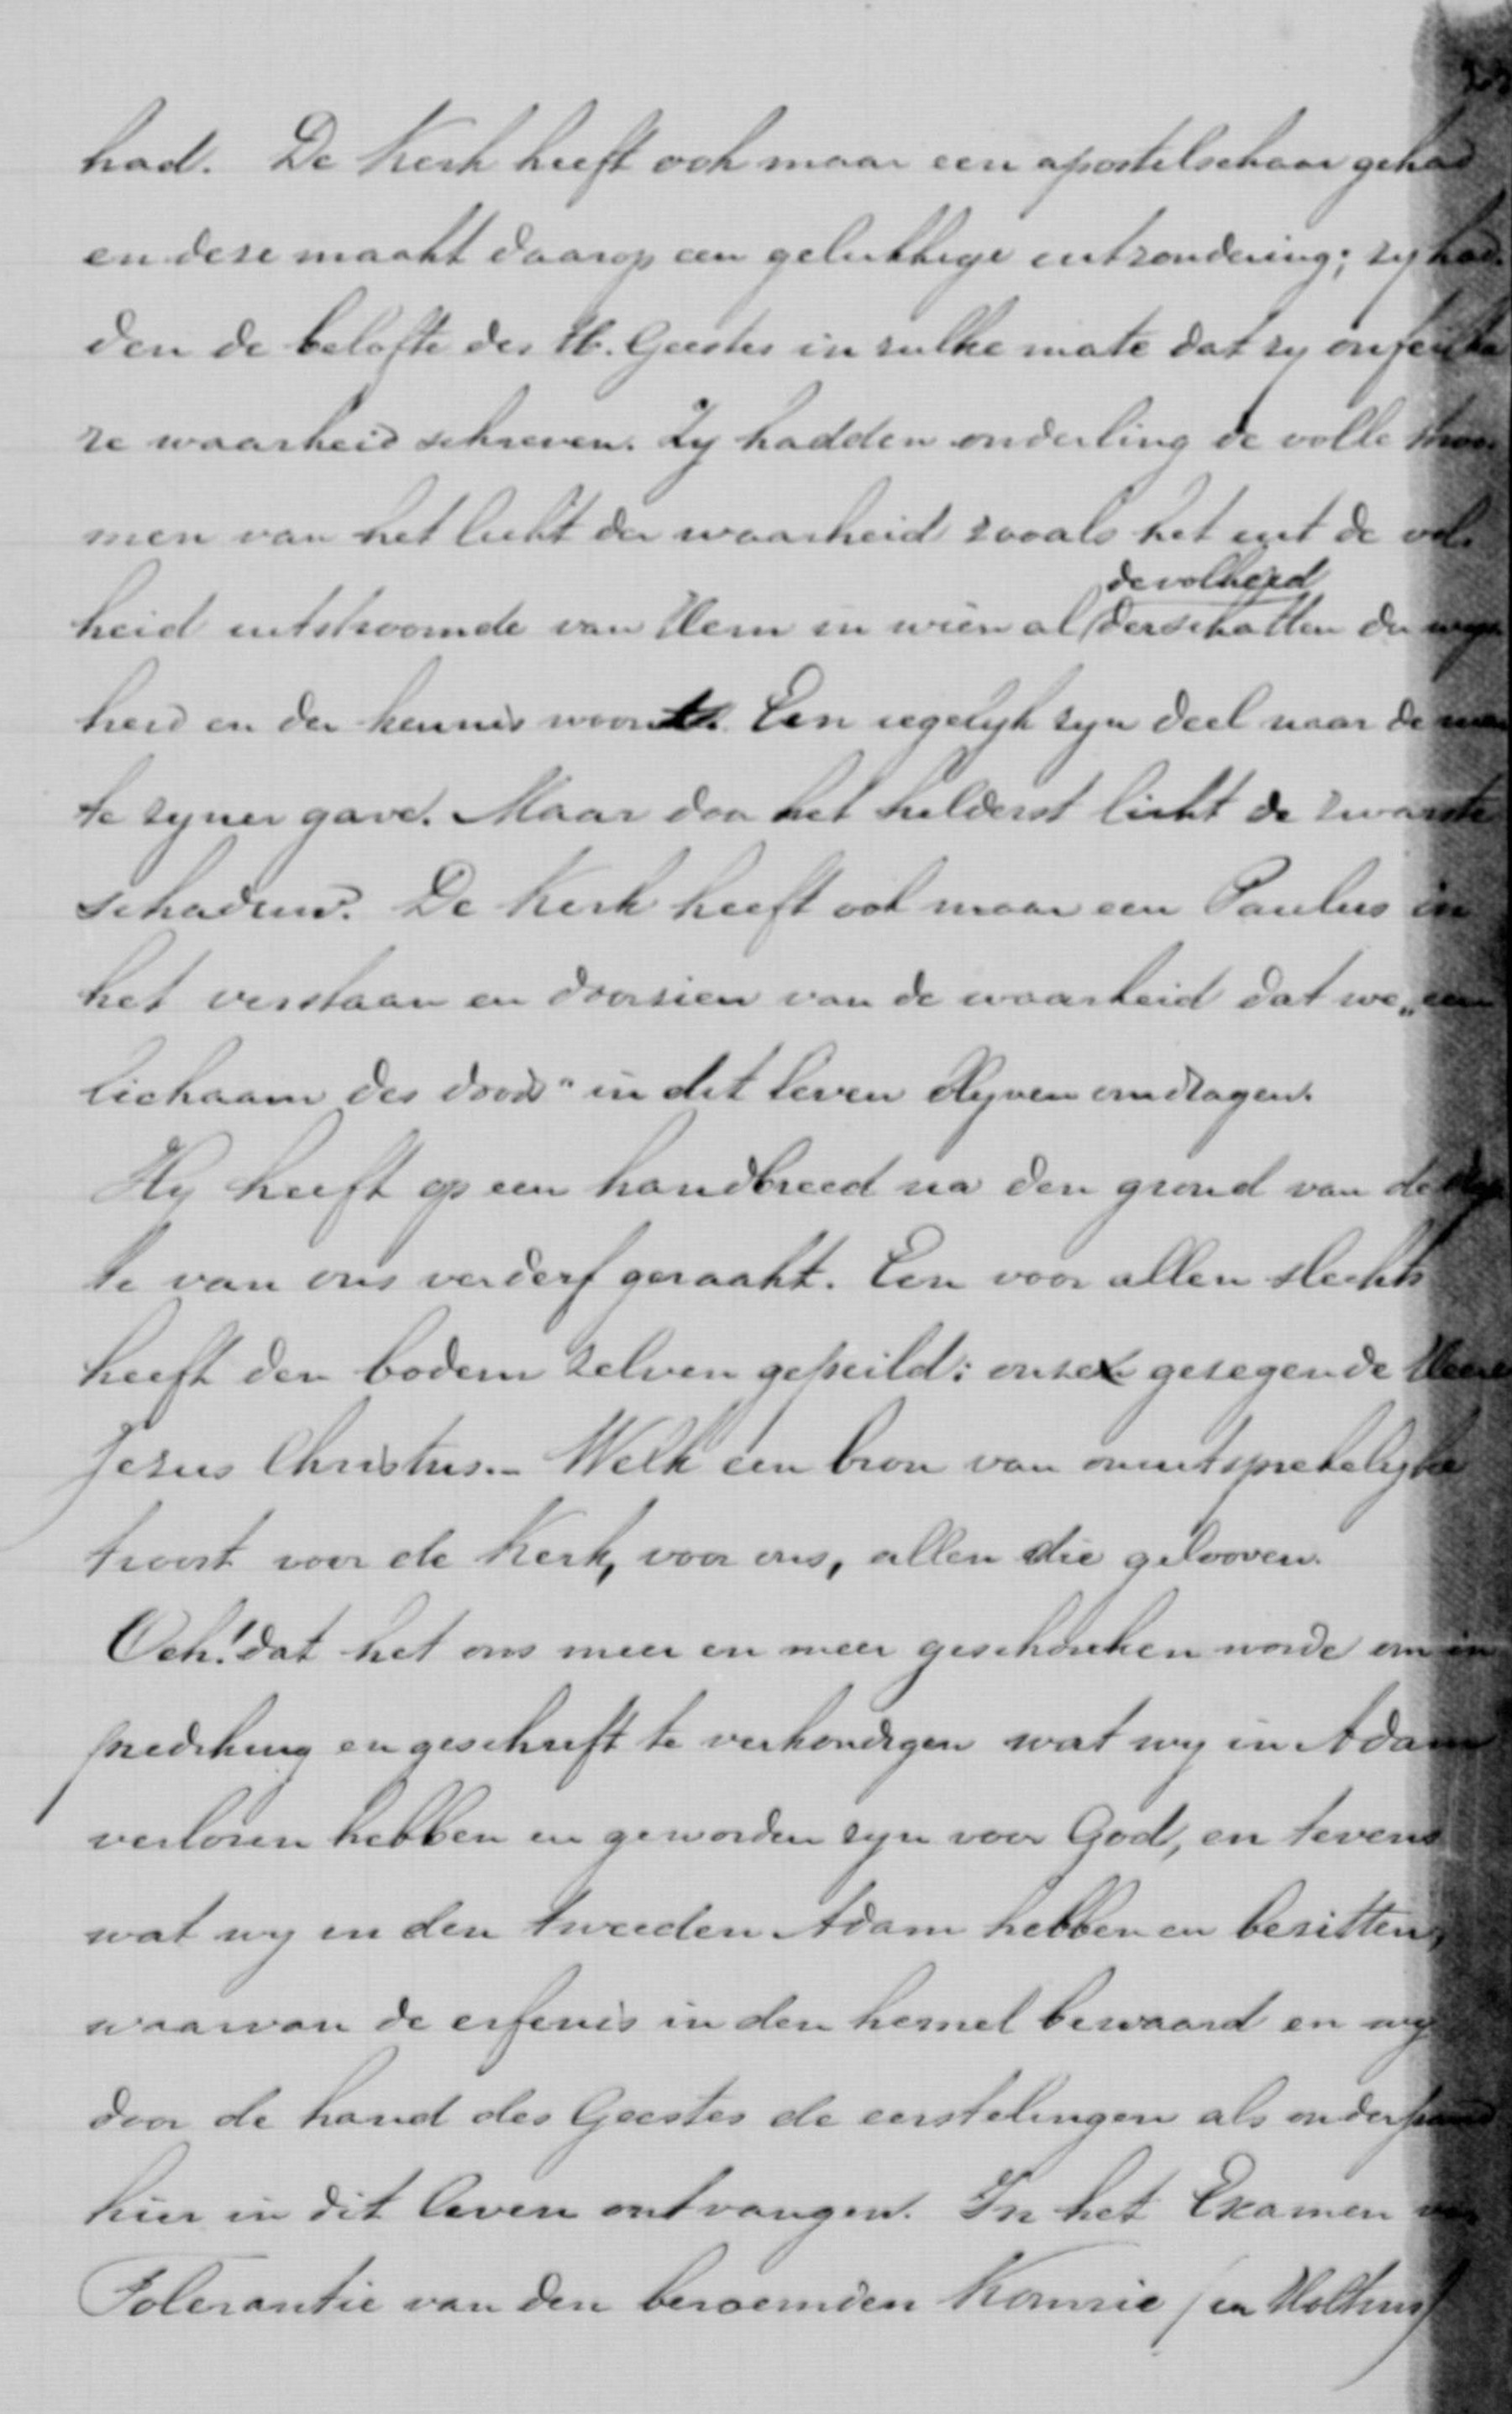 had. De Kerk heeft ook maar een apostelschaar gehad
en deze maakt daarop een gelukkige uitzondering; zy had-
den de belofte des H. Geestes in zulke mate dat zy onfeilba
re waarheid schreven. Zy hadden onderling de volle stroo-
men van het licht der waarheid zooals het uit de vol-
de volheid
heid uitstroomde van Hem in wien al der schatten der wys
heid en der kennis woont. Een iegelyk zyn deel naar de ma
te zyner gave. Maar door het helderst licht de zwarste
schaduw. De Kerk heeft ook maar een Paulus in
het verstaan en doorzien van de waarheid dat we „een
lichaam des doods" in dit leven blyven omdragen.
Hy heeft op een handbreed na den grond van de diep
te van ons verderf geraakt. Een voor allen slechts
heeft den bodem zelven gepeild: onze gezegende Heere
Jezus Christus.- Welk een bron van onuitsprekelyke
troost voor de Kerk, voor ons, allen die gelooven.
Och! dat het ons meer en meer geschonken worde om in
prediking en geschrift te verkondigen wat wy in Adam
verloren hebben en geworden zyn voor God, en tevens
wat wy in den tweeden Adam hebben en bezitten,
waarvan de erfenis in den hemel bewaard en wy
door de hand des Geestes de eerstelingen als onderpand
hier in dit leven ontvangen. In het Examen van
Tolerantie van den beroemden Komrie (en Holtius)